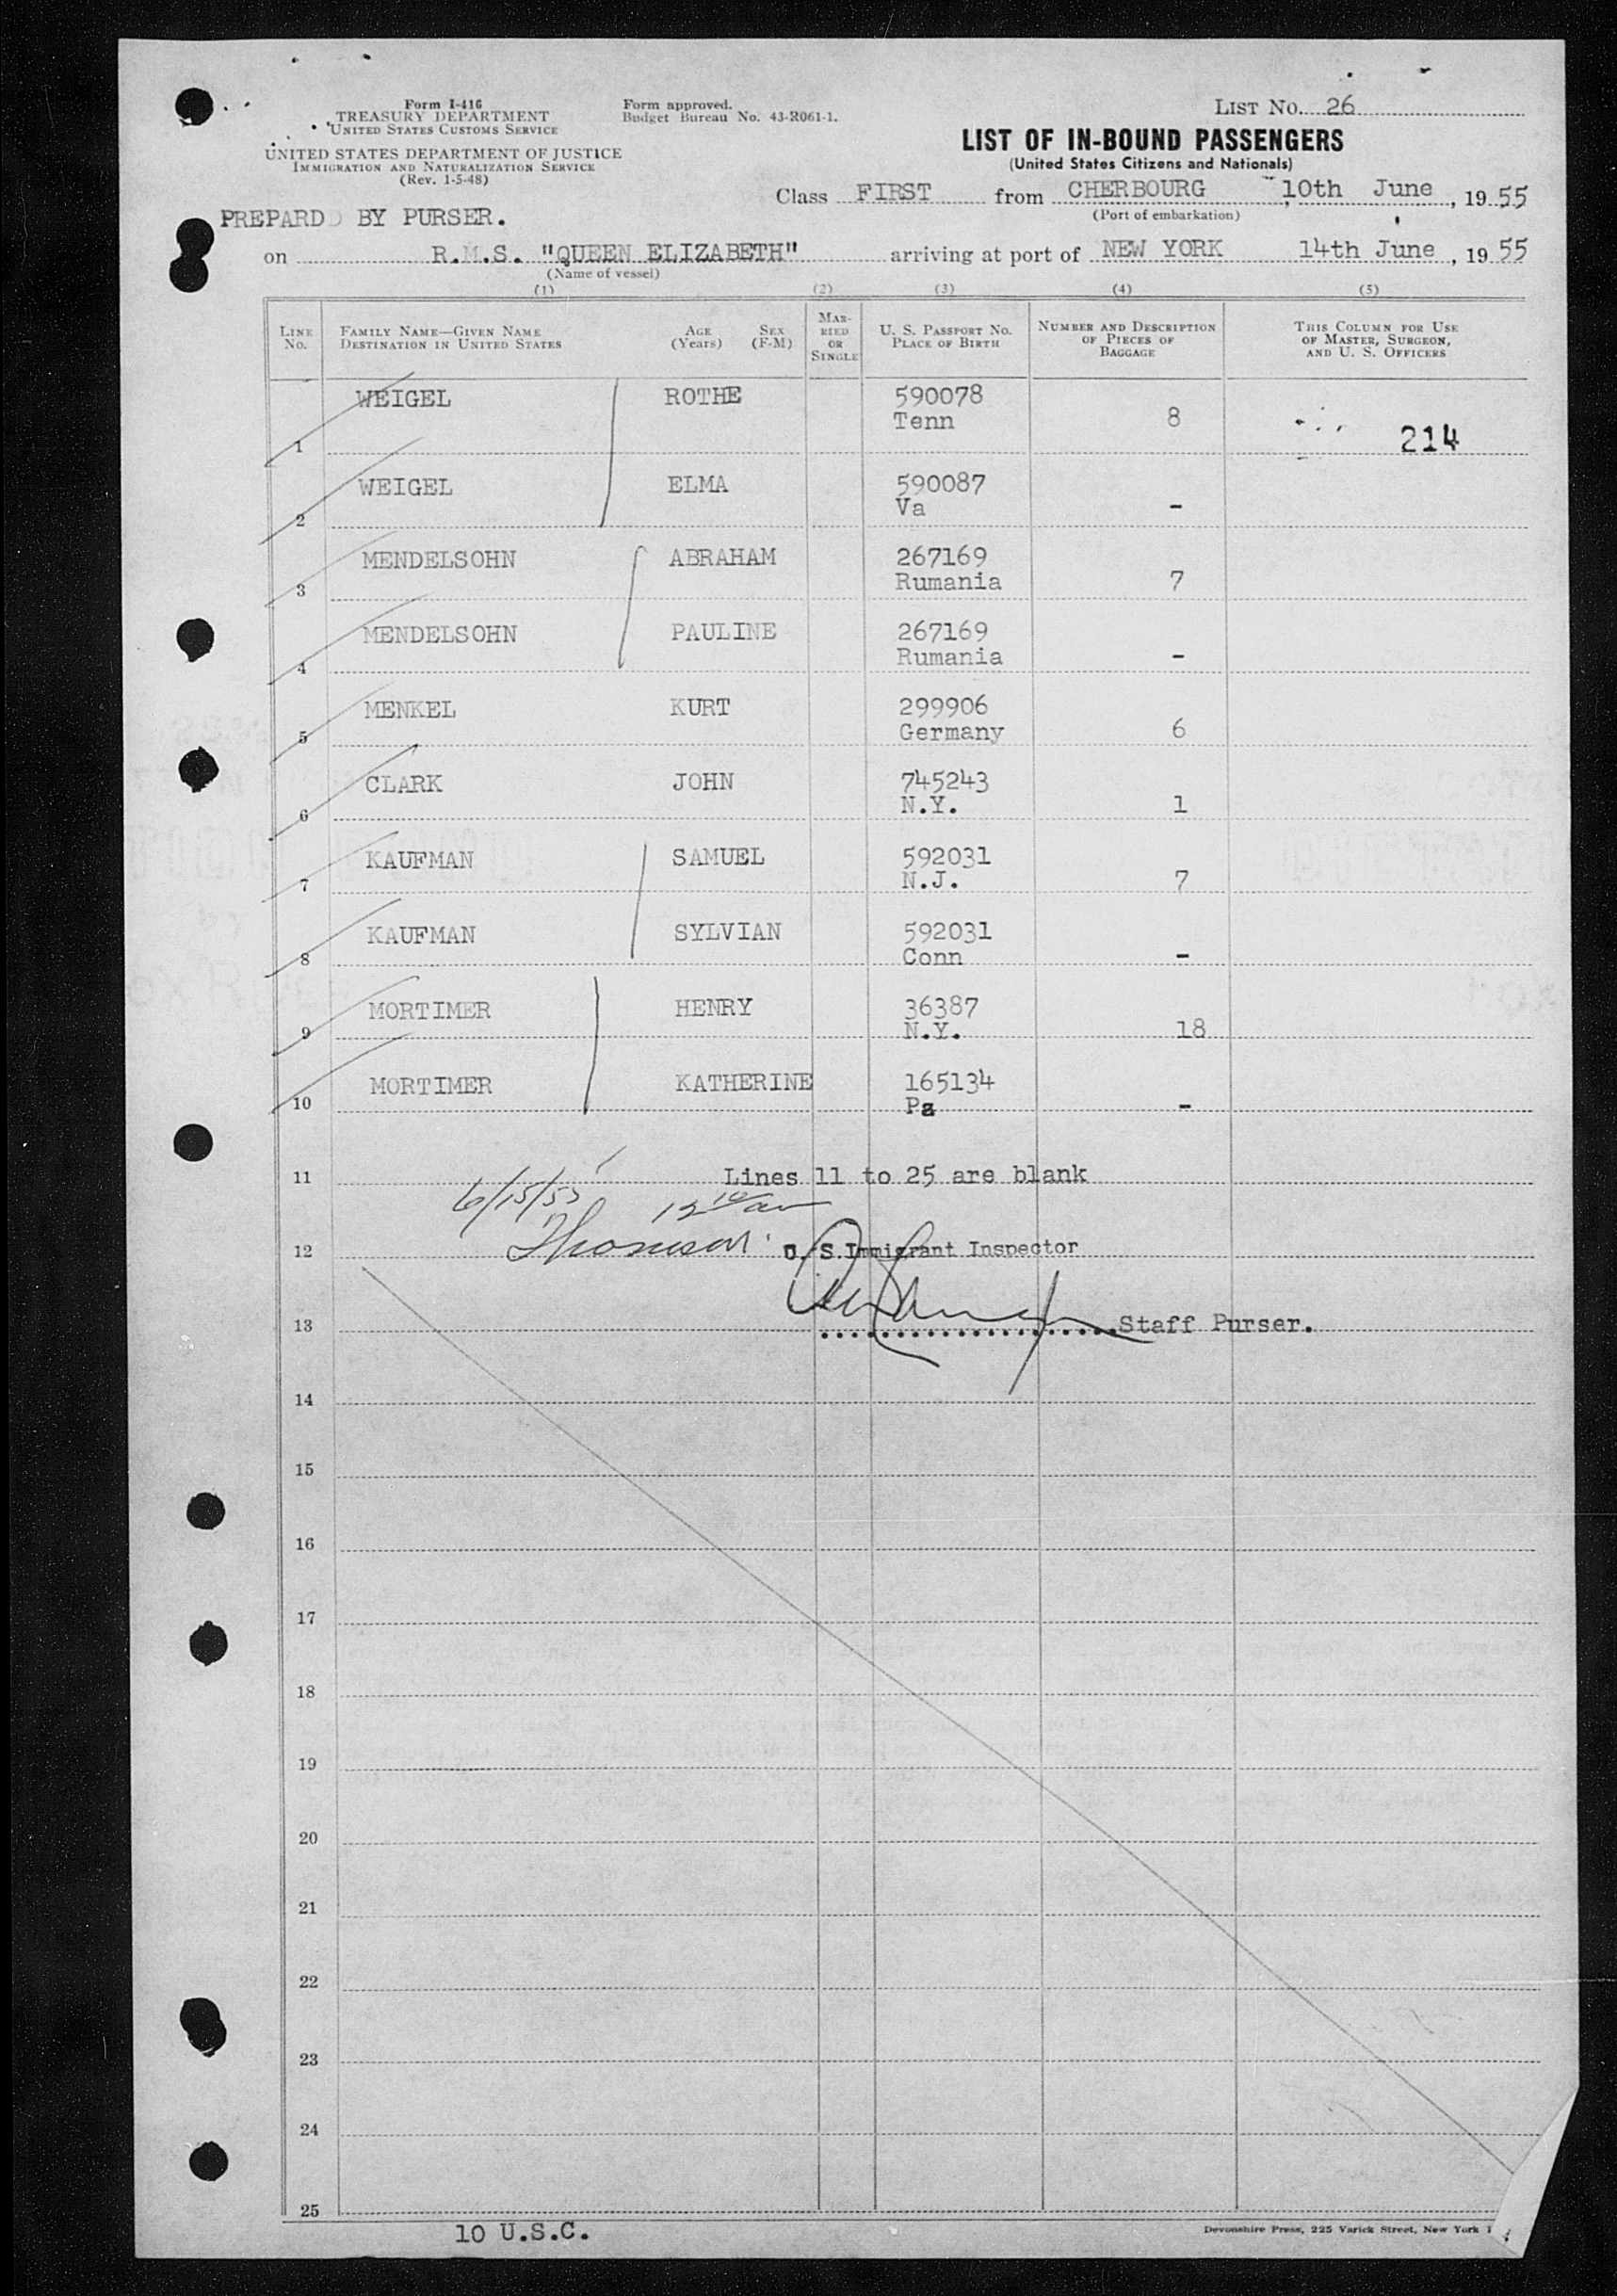 Form I-416
TREASURY DEPARTMENT
UNITED STATES CUSTOMS SERVICE
UNITED STATES DEPARTMENT OF JUSTICE
IMMIGRATION AND NATURALIZATION SERVICE
(Rev. 1-5-48)
Form approved.
Budget Bureau No. 43-R061-1.
LIST No. 26
LIST OF IN-BOUND PASSENGERS
(United States Citizens and Nationals)
Class FIRST from CHERBOURG 10th June, 1955
(Port of embarkation)
PREPARD BY PURSER.
on R.M.S. "QUEEN ELIZABETH" arriving at port of NEW YORK 14th June, 1955
(Name of vessel)
(1) (2) (3) (4) (5)
LINE No. FAMILY NAME—GIVEN NAME DESTINATION IN UNITED STATES AGE (Years) SEX (F-M) MARRIED OR SINGLE U. S. PASSPORT No. PLACE OF BIRTH NUMBER AND DESCRIPTION OF PIECES OF BAGGAGE THIS COLUMN FOR USE OF MASTER, SURGEON, AND U. S. OFFICERS
WEIGEL ROTHE 590078
1 Tenn 8 214
WEIGEL ELMA 590087
2 Va -
MENDELSOHN ABRAHAM 267169
3 Rumania 7
MENDELSOHN PAULINE 267169
4 Rumania -
MENKEL KURT 299906
5 Germany 6
CLARK JOHN 745243
6 N.Y. 1
KAUFMAN SAMUEL 592031
7 N.J. 7
KAUFMAN SYLVIAN 592031
8 Conn -
MORTIMER HENRY 36387
9 N.Y. 18
MORTIMER KATHERINE 165134
10 Pa -
11 Lines 11 to 25 are blank
6/15/55
12 Thomson U.S.Immigrant Inspector
13 Staff Purser.
14
15
16
17
18
19
20
21
22
23
24
25
10 U.S.C.
Devonshire Press, 225 Varick Street, New York